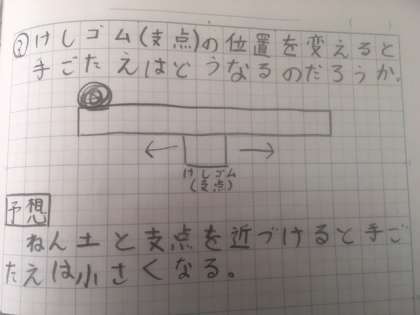 ? けしゴム(支点)の位置を変えると
手ごたえはどうなるのだろうか。
けしゴム
(支点)
予想
ねん土と支点を近づけると手ご
たえは小さくなる。